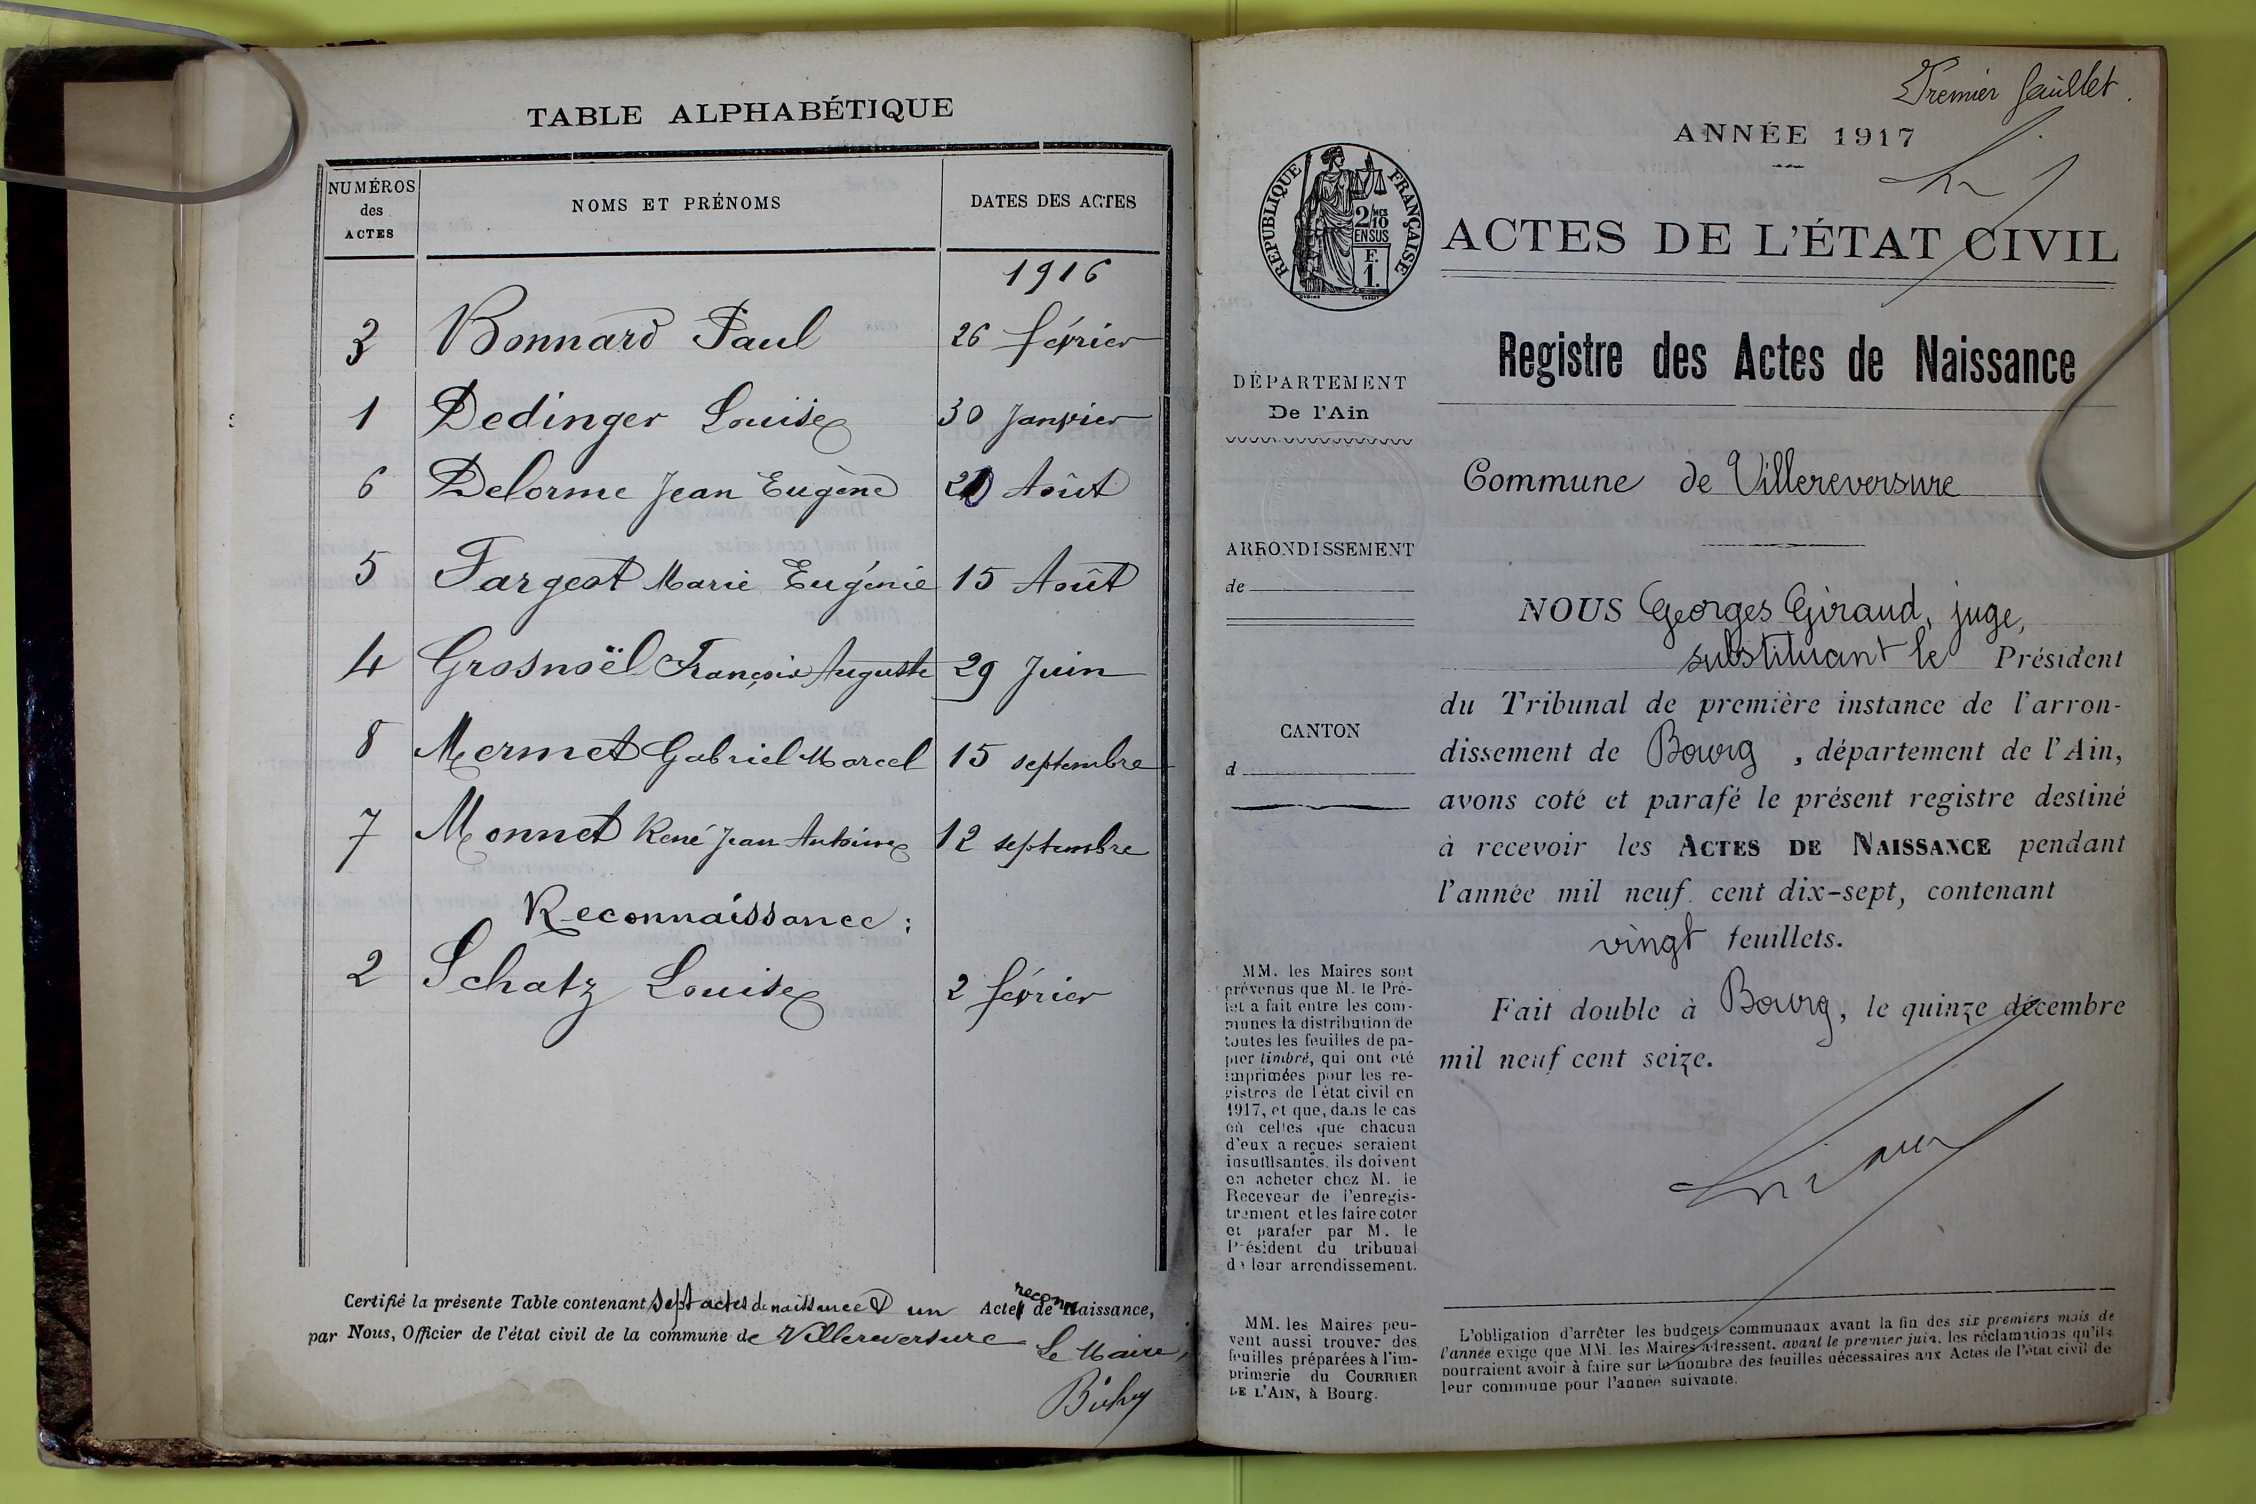 TABLE ALPHABÉTIQUE
NUMÉROS des ACTES
NOMS ET PRÉNOMS
DATES DES ACTES
1916
3 Bonnard Paul 26 février
1 Dedinger Louise 30 Janvier
6 Delorme Jean Eugène Août
5 Fargeot Marie Eugénie 15 Août
4 Grosnoël François Auguste 29 Juin
8 Mermet Gabriel Marcel 15 septembre
7 Monnet René Jean Antoine 12 septembre
Reconnaissance :
2 Schatz Louise 2 février
Certifié la présente Table contenant sept actes de naissance & un Acte de reconnaissance,
par Nous, Officier de l'état civil de la commune de Villereversure
Le Maire,
Premier feuillet.
ANNÉE 1917
RÉPUBLIQUE FRANÇAISE
2/10 MES
EN SUS
F.
1.
ACTES DE L'ÉTAT CIVIL
Registre des Actes de Naissance
DÉPARTEMENT
De l'Ain
Commune de Villereversure
ARRONDISSEMENT
de
CANTON
d
NOUS Georges Giraud, juge,
substituant le Président
du Tribunal de première instance de l'arron-
dissement de Bourg, département de l'Ain,
avons coté et parafé le présent registre destiné
à recevoir les ACTES DE NAISSANCE pendant
l'année mil neuf cent dix-sept, contenant
vingt feuillets.
Fait double à Bourg, le quinze décembre
mil neuf cent seize.
MM. les Maires sont
prévenus que M. le Pré-
fet a fait entre les com-
munes la distribution de
toutes les feuilles de pa-
pier timbré, qui ont été
imprimées pour les re-
gistres de l'état civil en
1917, et que, dans le cas
où celles que chacun
d'eux a reçues seraient
insuffisantes, ils doivent
en acheter chez M. le
Receveur de l'enregis-
trement et les faire coter
et parafer par M. le
Président du tribunal
de leur arrondissement.
MM. les Maires peu-
vent aussi trouver des
feuilles préparées à l'im-
primerie du COURRIER
DE L'AIN, à Bourg.
L'obligation d'arrêter les budgets communaux avant la fin des six premiers mois de
l'année exige que MM. les Maires adressent, avant le premier juin, les réclamations qu'ils
pourraient avoir à faire sur le nombre des feuilles nécessaires aux Actes de l'état civil de
leur commune pour l'année suivante.